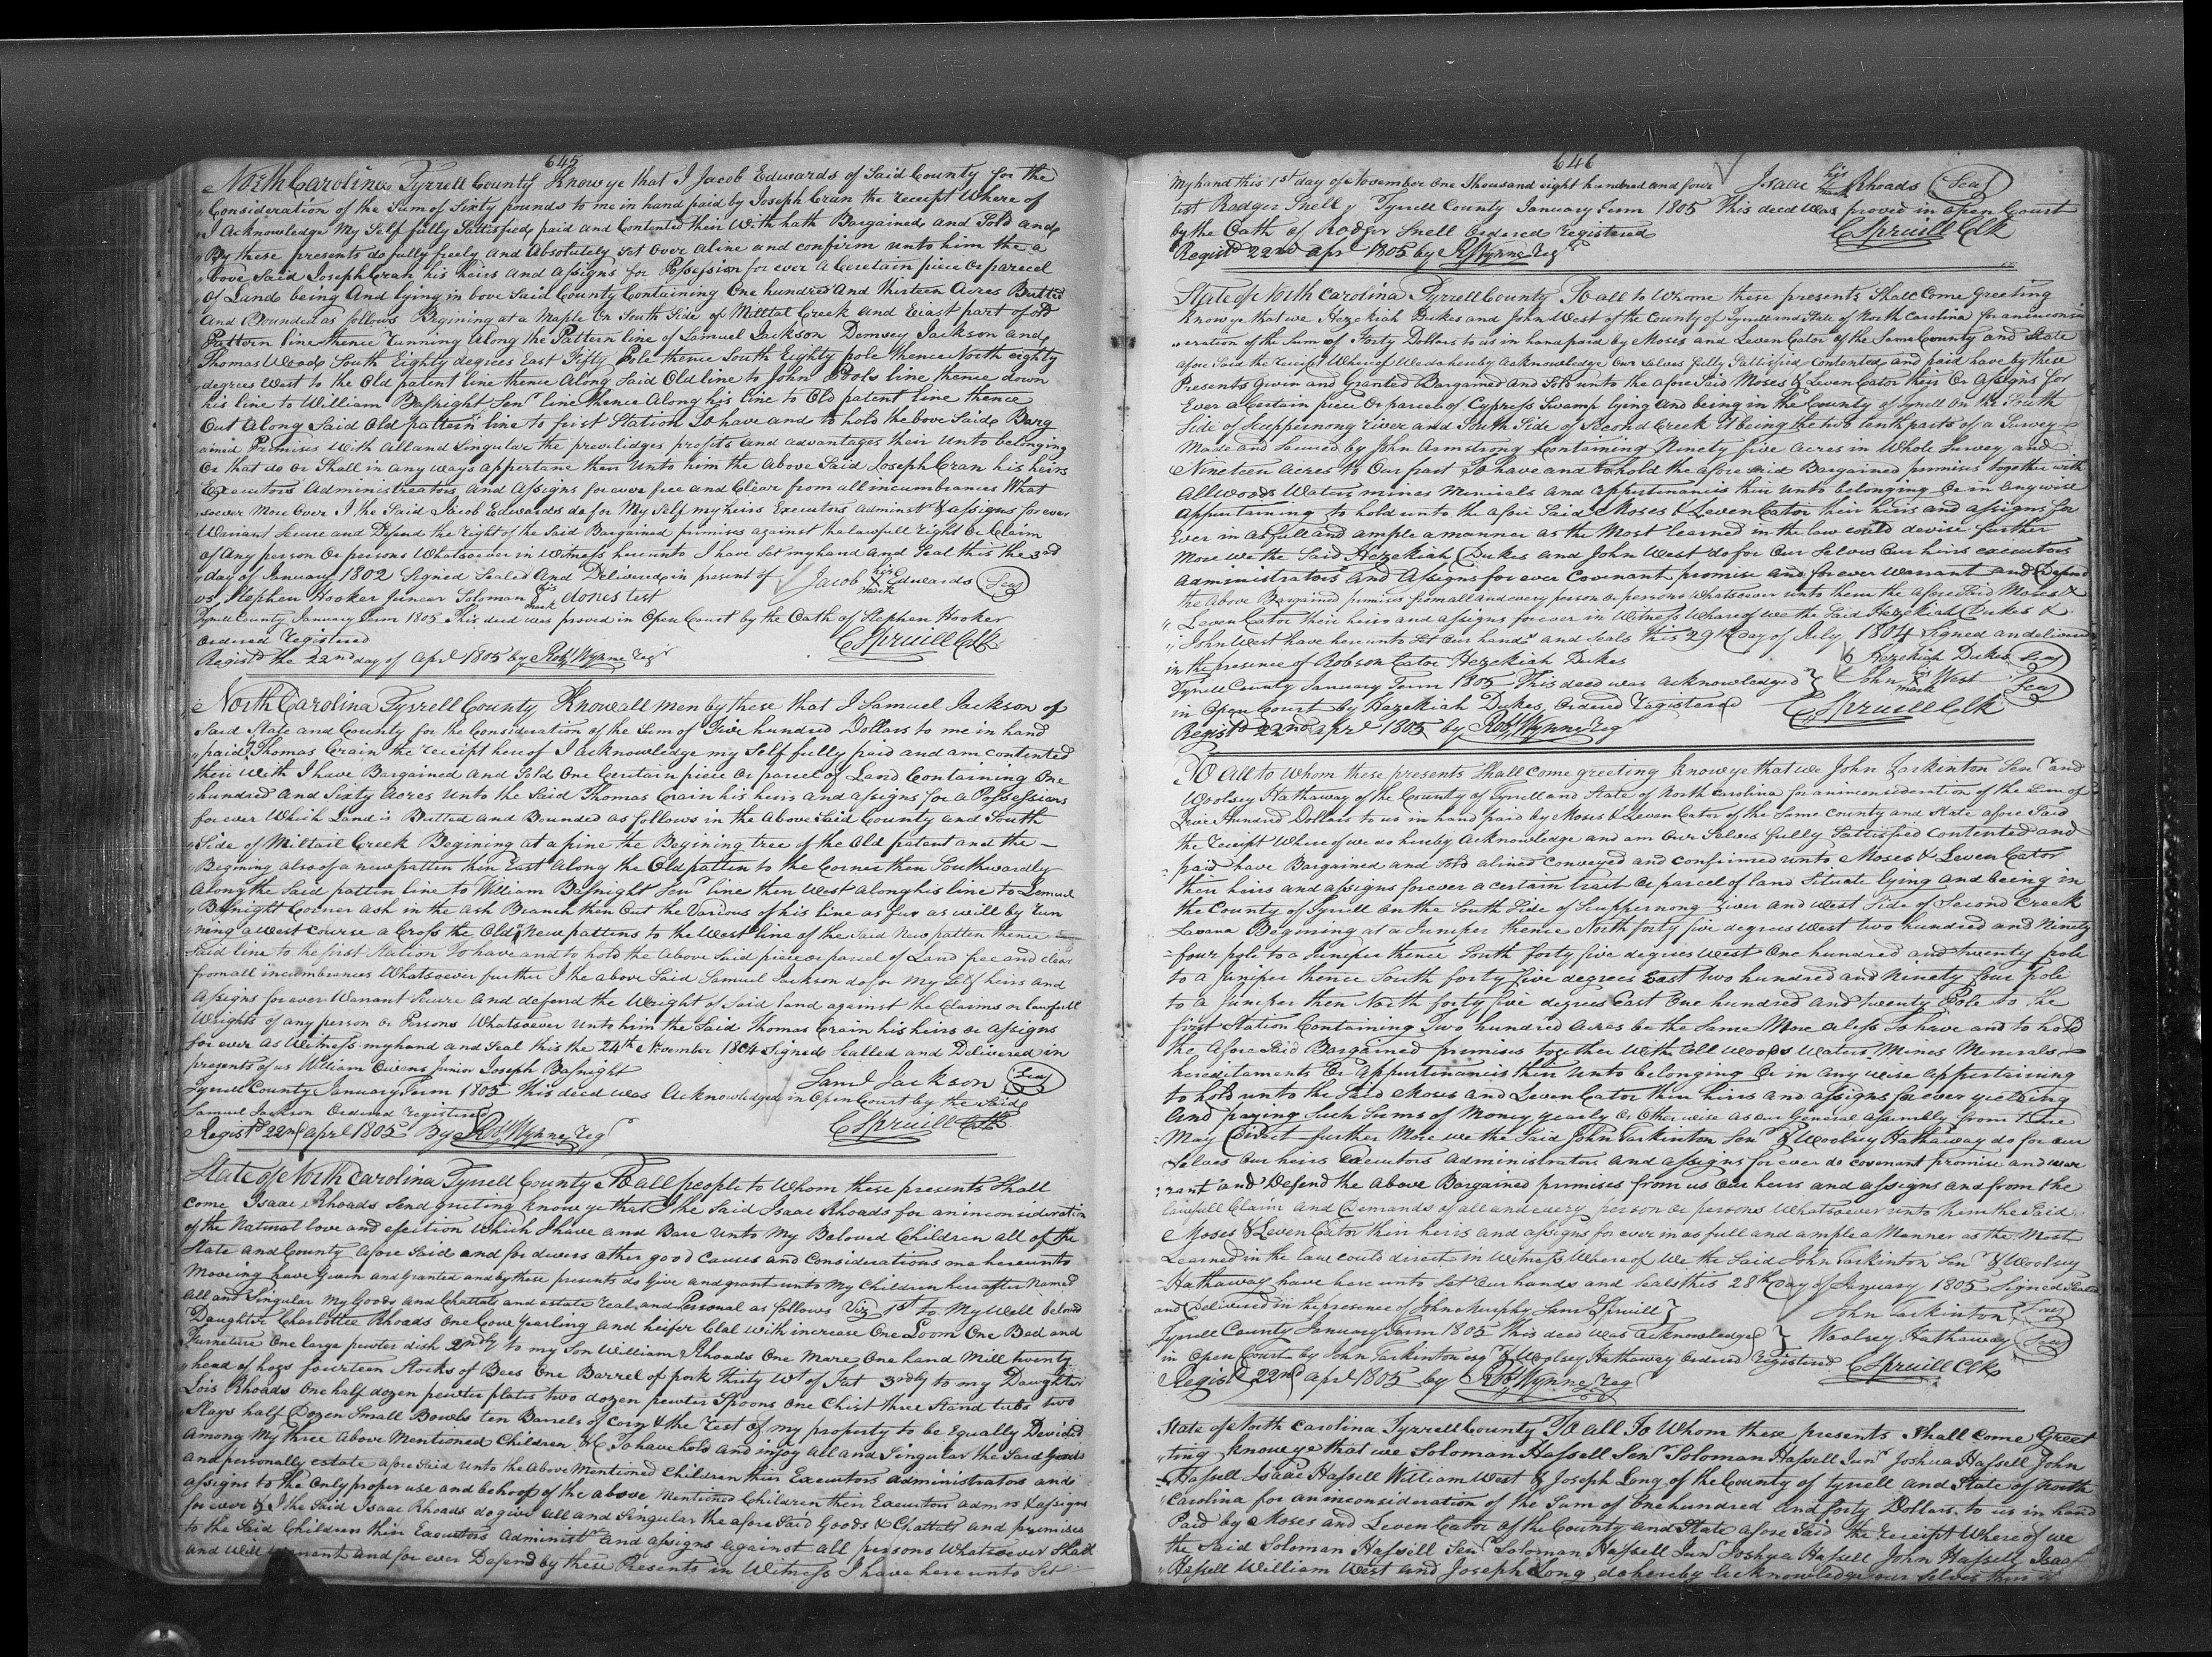 645
North Carolina Tyrrell County Know ye that I Jacob Edwards of Said County for the
Consideration of the Sum of Sixty pounds to me in hand paid by Joseph Cran the receipt Where of
I Acknowledge My Self fully Sattisfied paid and Contented their With hath Bargained and Sold and
By these presents do fully freely and Absolutely Set Over aline and confirm unto him the a
bove Said Joseph Cran his heirs and assigns for Possession for ever A Ceretain piece or parecel
of Land being And lying in bove Said County Containing One hundred And thirteen Acres Butted
and Bounded as follows Begining at a Maple On South Side of Milltal Creek and Eeast part of old
Pattern line thence running Along the Pattern line of Samuel Jackson Demsey Jackson and
Thomas Wood South Eighty degrees East Fifty Pole thence South Eighty pole thence North eighty
degrees West to the Old patent line thence Along Said Old line to John Pools line thence down
his line to William Basnight Senr line thence Along his line to Old patent line thence
Out Along Said Old pattern line to first Station To have and to hold the bove Said Barg
ained Premises With All and Singular the previlidges profits and advantages their Unto belonging
Or that do or Shall in any ways appertane then Unto him the Above Said Joseph Cran his heirs
Executors Administreators and Assigns for ever free and Clear from all incumbrances What
soever More Over I the Said Jacob Edwards do for My Self my heirs Executors Administ & assigns for ever
Warrant Secure and Defend the right of the Said Bargained primises against the lawfull right or Claim
of Any person or persons Whatsoever in Witness here unto I have Set my hand and Seal this the 3rd
day of January 1802 Signed Sealed And Delivered in present of Jacob his X mark Edwards (Seal)
us Stephen Hooker Junear Soloman his mark Jones test
Tyrrell County January Term 1805 This deed was proved in Open Court by the Oath of Stephen Hooker
Ordered Registered C Spruill Clk
Registd the 22nd day of Aprl 1805 by Robt Wynne Regr
North Carolina Tyrrell County Know all men by these that I Samuel Jackson of
Said State and County for the Consideration of the Sum of Five hundred Dollars to me in hand
paid Thomas Crain the receipt here of I acknowledge my Self fully paid and am contented
their with I have Bargained and Sold One Ceretain piece or parcel of Land Containing One
hundred And Sixty Acres Unto the Said Thomas Crain his heirs and assigns for a Possessions
for ever Which Land is Butted and Bounded as follows in the Above Said County and South
Side of Miltail Creek Begining at a pine the Begining tree of the Old patent and the
Begining also of a new patten then East Along the Old patten to the Corner then Southwardly
Along the Said patten line to William Basnight Senr line then West Along his line to Lemuel
Basnight Corner Ash in the Ash Branch then Out the Various of his line as fur as will by run
ning a west Course a Cross the Old & New pattens to the West line of the Said New patten thence
Said line to the first Station To have and to hold the Above Said piece or parcel of Land free and clear
from all incumbrances Whatsoever further I the above Said Samuel Jackson do for My Self heirs and
Assigns for ever Warrant Secure and defend the Wright of Said land against the Claims or lawfull
Wrights of any person or Persons Whatsoever Unto him the Said Thomas Crain his heirs or Assigns
for ever As Witness my hand and Seal this the 24th November 1804 Signed Sealled and Delivered in
presents of us William Owens Junior Joseph Basnight Saml Jackson (Seal)
Tyrrell County January Term 1805 This deed was Acknowledged in Open Court by the Said
Samuel Jackson Ordered registered C Spruill Clk
Registd 22nd Aprl 1805 By Robt Wynne Regr
State of North Carolina Tyrrell County To all people to Whom these presents Shall
come Isaac Rhoads Send greeting know ye that I the Said Isaac Rhoads for an inconsideration
of the Natural love and efection Which I have and Bare Unto My Beloved Children all of the
State and County afore Said and for divers other good Causes and Considerations me hereunto
Moveing have Given and Granted and by these presents do Give and grant unto My Children here after Named
All and Singular My Goods and Chattats and estate real and Personal as follows Viz 1st To My Well beloved
Daughter Charlottee Rhoads One Cow Yearling and heifer Clal with increase One Loom One Bed and
Furneture One large pewter dish 2ndly to my Son William Rhoads One Mare One hand Mill twenty
head of hogs fourteen Stocks of Bees One Barrel of pork thirty Wt of Fat 3rdly to my Daughter
Lois Rhoads One half dozen pewter plates two dozen pewter Spoons One Chist three Stand tubs two
Slays half Dozen Small Bowls ten Barrels of Corn & the rest of my property to be Equally Devided
Among My three Above Mentioned Children &C To have hold and injoy All and Singular the Said goods
and personally estate afore Said Unto the Above Mentioned Children thir Executors administrators and
assigns to the Only proper use and behoof of the above Mentioned Children their Executors adm rs & assigns
for ever & I the Said Isaac Rhoads do give All and Singular the afore Said Goods & Chattats and premises
to the Said Children thir Executors Administ and assigns against All persons Whatsoever Shall
and Will Warrent and for ever Defend by these Presents in Witness I have here unto Set
646
My hand this 1st day of November One Thousand eight hundred and four Isaac his mark Rhoads (Seal)
test Rodger Snell Tyrrell County January Term 1805 This deed Was proved in Open Court
by the Oath of Rodger Snell Ordered registered C Spruill Clk
Registd 22nd Apr 1805 by R Wynne Regr
State of North Carolina Tyrrell County To all to Whome these presents Shall Come Greeting
Know ye that we Hezekiah Dukes and John West of the County of Tyrrell and State of North Carolina for an in consid
eration of the Sum of Forty Dollars to us in hand paid by Moses and Leven Cator of the Same County and State
afore Said the receipt Whereof We do hereby Acknowledge Our Selves fully Sattisfied Contented and paid have by these
Presents Given and Granted Bargained and Sold unto the afore Said Moses & Leven Cator their Or Assigns for
Ever a Certain piece Or parcel of Cypress Swamp lying and being in the County of Tyrrell On the South
Side of Scuppernong river and South Side of Second Creek it being the two tenth parts of a Survey
Made and Secured by John Armstrong Containing Ninety five Acres in Whole Survey and
Nineteen Acres is Our part To have and to hold the afore Said Bargained primises together with
All Woods Waters mines Minirals and appurtenancis their Unto belonging Or in Any wise
Appurtaining to hold unto the afore Said Moses & Leven Cator their heirs and assigns for
Ever in as full and ample a manner as the Most learned in the law could devise further
More we the Said Hezekiah Dukes and John West do for Our Selves Our heirs executors
Administrators And Assigns for ever Covenant promise and forever Warrant and Defend
the Above Bargained primises from all and every person or persons Whatsoever unto them the aforeSaid Moses &
Leven Cator their heirs and assigns forever in Witness Whereof we the Said Hezekiah Dukes &
John West have here unto Set Our hands and Seals this 29th day of July 1804 Signed an delivered
in the presence of Robson Cator Hezekiah Dukes Hezekiah Dukes (Seal)
Tyrrell County January Term 1805 This deed was Acknowledged John his X mark West (Seal)
in Open Court by Hezekiah Dukes Ordered registered C Spruill Clk
Registd 22nd Aprl 1805 by Robt Wynne Regr
To All to Whom these presents Shall come greeting know ye that we John Tarkinton Senr and
Woolsey Hathaway of the County of Tyrrell and State of North Carolina for an inconsideration of the Sum of
Hundred Dollars to us in hand paid by Moses & Leven Cator of the Same County and State afore Said
the receipt Where of we do hereby Acknowledge and am Our Selves fully Sattisfied Contented and
paid have Bargained and Sold alined Conveyed and confirmed unto Moses & Leven Cator
their heirs and assigns forever a certain tract or parcel of land Situate lying and being in
the County of Tyrrell on the South Side of Scuppernong river and West Side of Second Creek
Lavana Begining at a Juniper thence North forty five degrees West two hundred and Ninety
four pole to a Juniper thence South forty five degrees West One hundred and twenty pole
to a Juniper thence South forty five degrees East two hundred and Ninety four pole
to a Juniper then North forty five degrees East One hundred and twenty Pole to the
first Station Containing Two hundred Acres be the Same More or less To have and to hold
the afore Said Bargained premises together With All woods Waters Mines Minerals
hereditaments Or Appurtinancis thir Unto belonging Or in any wise Appertaining
to hold unto the Said Moses and Leven Cator thir hirs and assigns forever yielding
And paying Such Sums of Money yearly Or Otherwise as our General Assembly from time
May Direct further More we the Said John Tarkinton Senr & Woolsey Hathaway do for our
Selves Our heirs Executors Administrators and assigns for ever do covenant promise and war
rant and Defend the Above Bargained primises from us Our heirs and assigns and from the
lawfull Claim and Demands of all and every person or persons Whatsoever unto them the Said
Moses & Leven Cator thir heirs and assigns for ever in as full and ample a Manner as the Most
Learned in the law could direct in Witness Where of We the Said John Tarkinton Senr & Woolsey
Hathaway have here unto Set Our hands and Seals this 28th Day of January 1805 Signed Sealed
and Delivered in the presence of John Murphy Saml Spruill John Tarkinton (Seal)
Tyrrell County January Term 1805 This deed was Acknowledged Woolsey Hathaway (Seal)
in Open Court by John Tarkinton esqr & Woolsey Hathaway Ordered registered C Spruill Clk
Registd 22nd Aprl 1805 by Robt Wynne Regr
State of North Carolina Tyrrell County To All To Whom these presents Shall Come Greet
ting know ye that we Soloman Hassell Senr Soloman Hassell Junr Joshua Hassell John
Hassell Isaac Hassell William West & Joseph Long of the County of tyrrell and State of North
Carolina for an inconsideration of the Sum of One hundred and forty Dollars to us in hand
Paid by Moses and Leven Cator of the County and State afore Said the receipt Where of we
the Said Soloman Hassell Senr Soloman Hassell Junr Joshua Hassell John Hassell Isaac
Hassell William West and Joseph Long do hereby Acknowledge our Selves